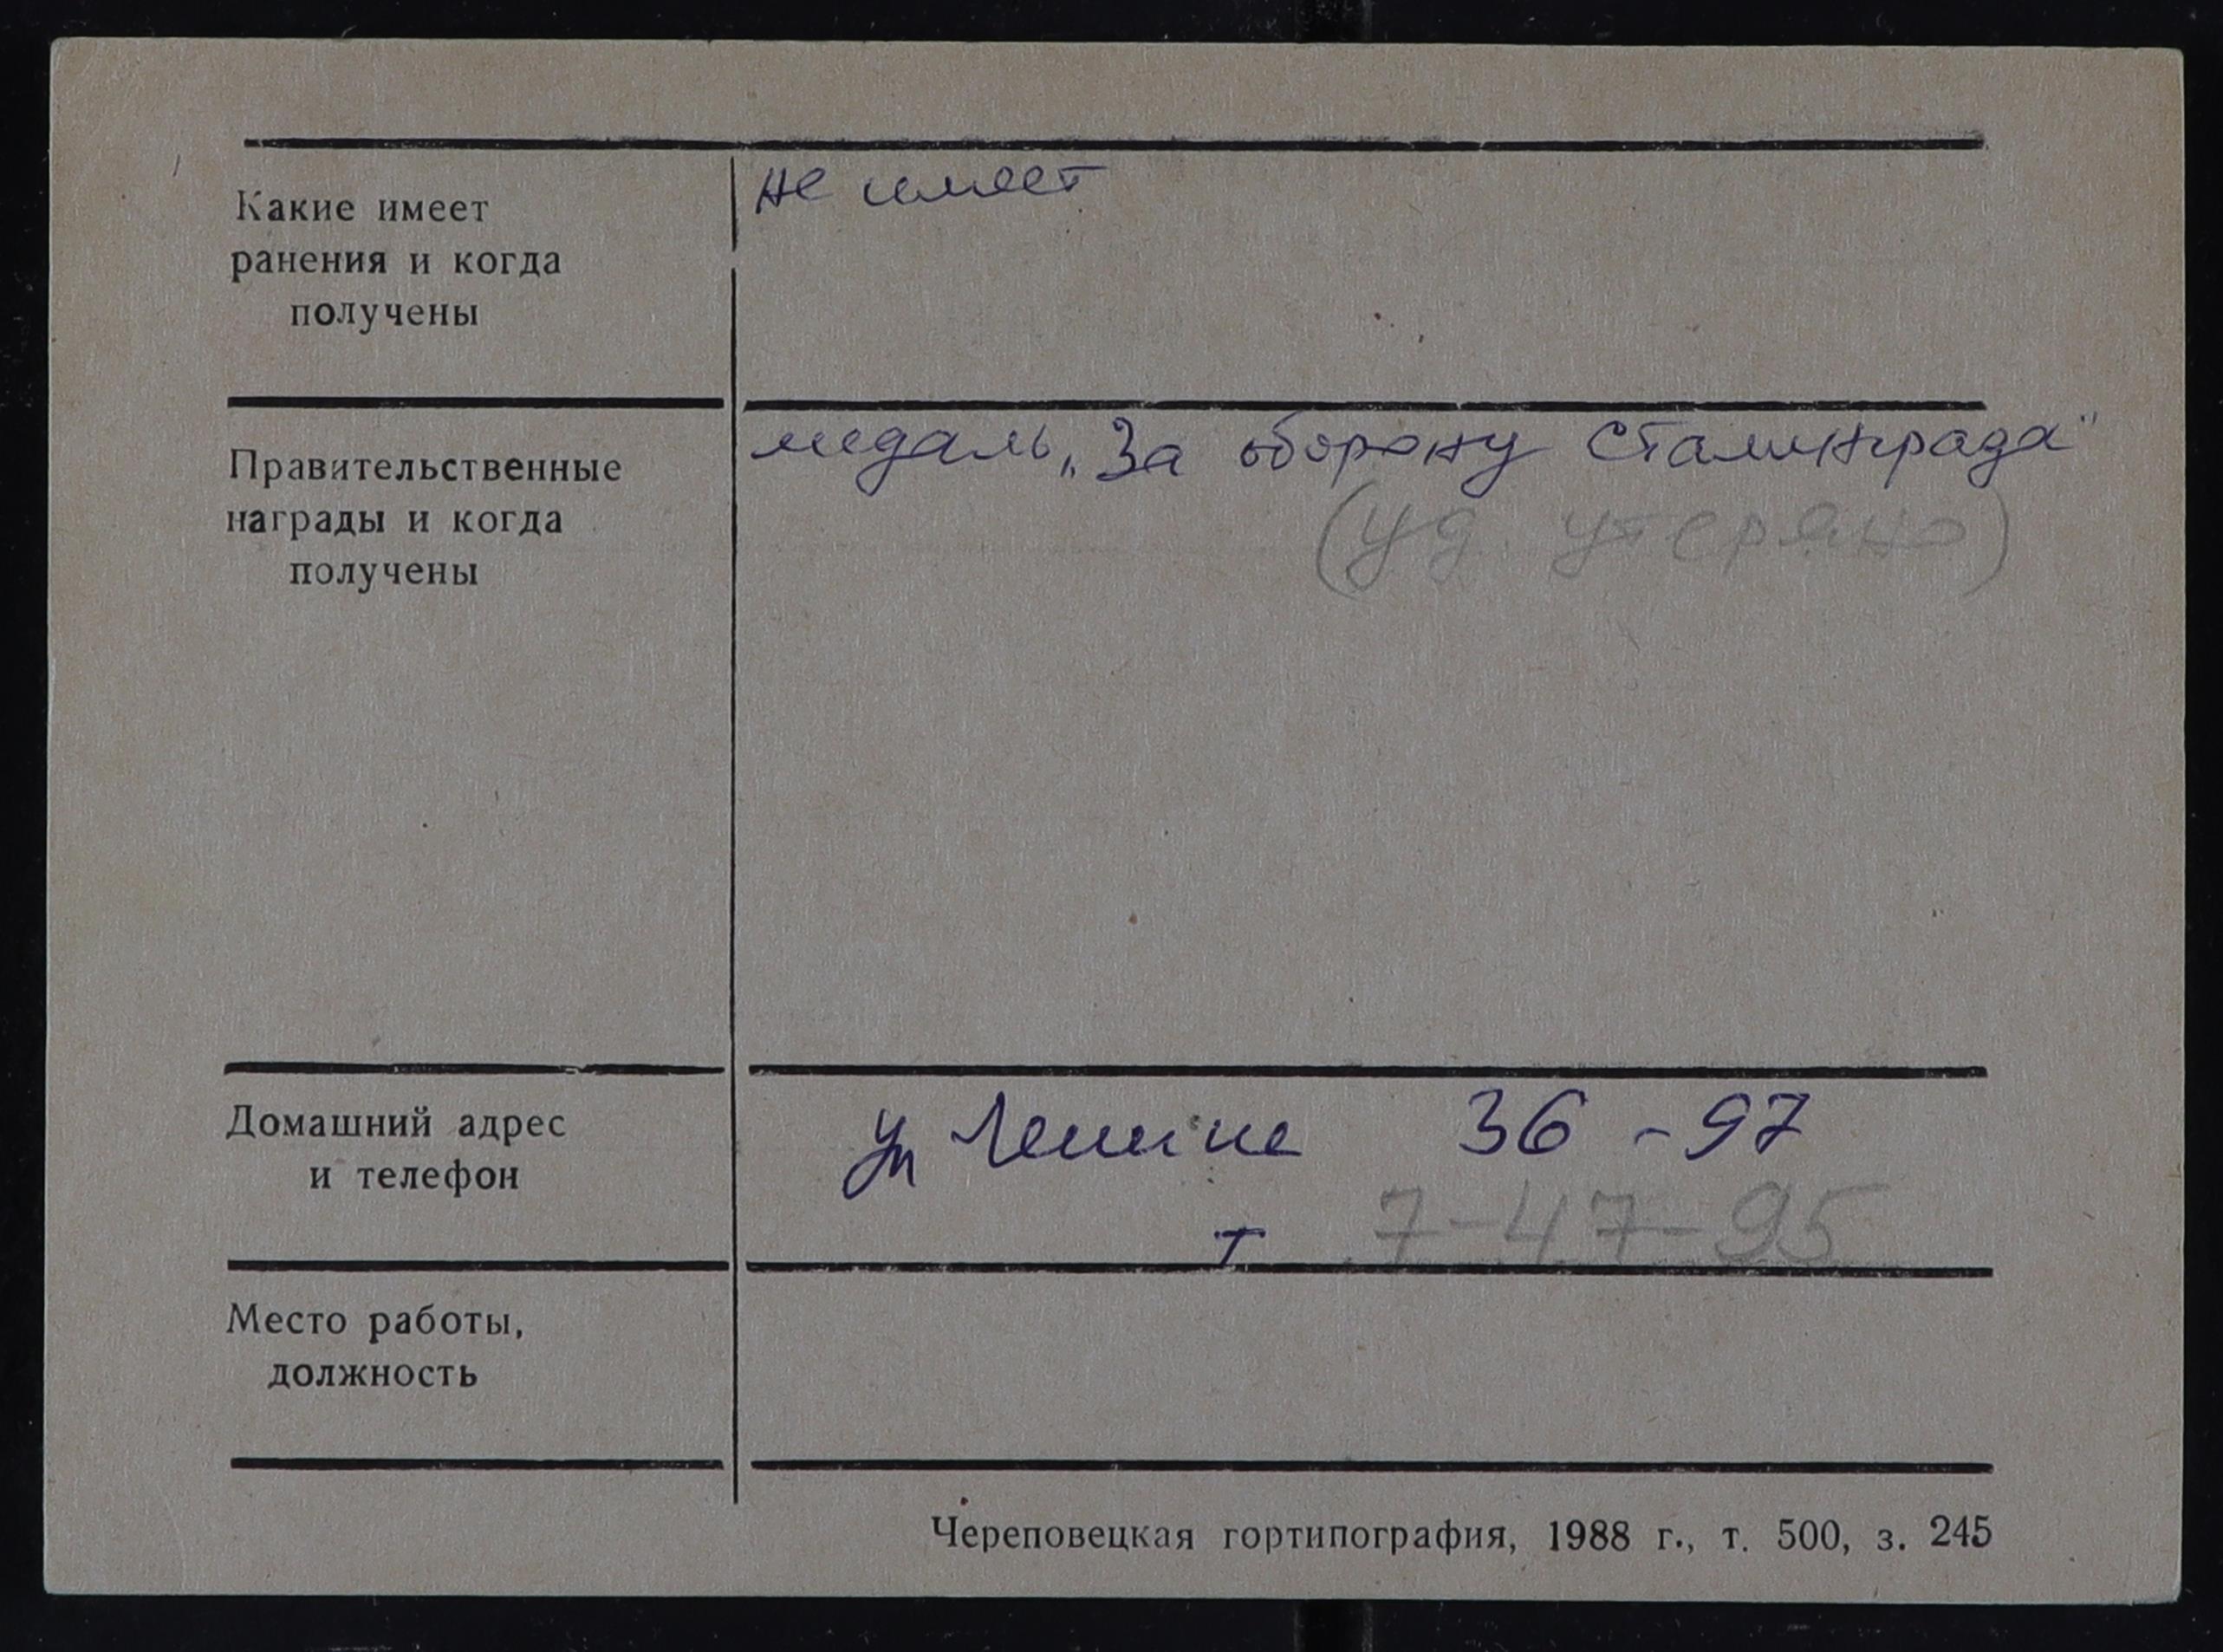 Какие имеет
ранения и когда
получены
не имеет
Правительственные
награды и когда
получены
медаль „За оборону Сталинграда"
(уд. утеряно)
Домашний адрес
и телефон
ул Ленина 36 - 97
т 7-47-95
Место работы,
должность
Череповецкая гортипография, 1988 г., т. 500, з. 245